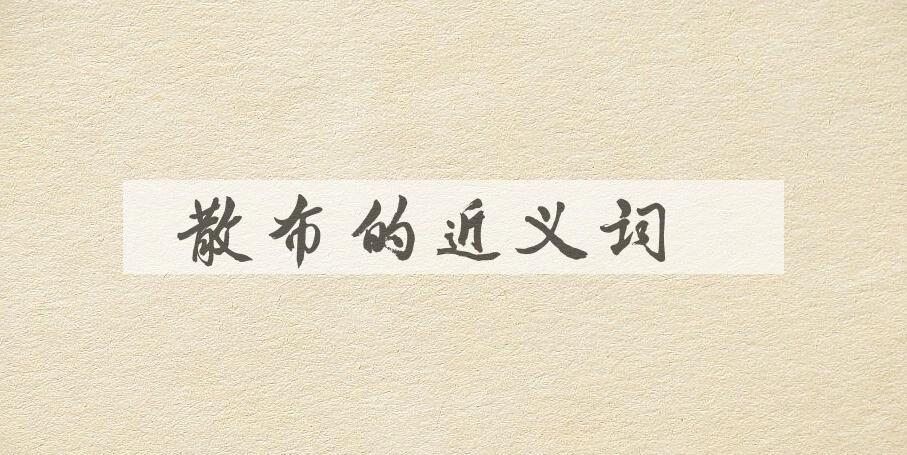 散布的近义词